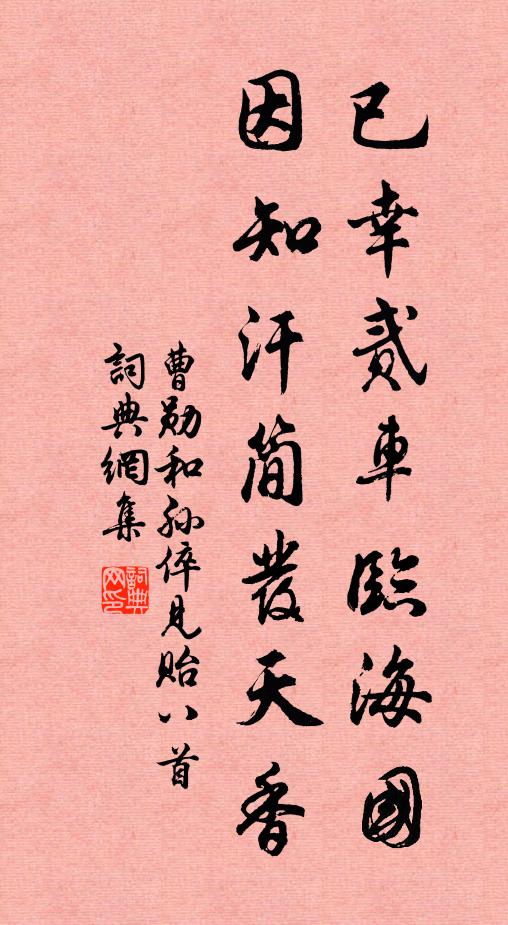 已幸貳車臨海國
因知汗簡發天香
曹勛和孫倅見貽八首
詞典網集
詞典网印